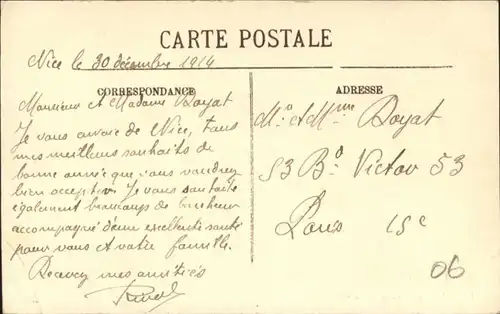 CARTE POSTALE
Nice le 30 décembre 1914
CORRESPONDANCE
ADRESSE
Monsieur et Madame Doyat
Je vous envoie de Nice, tous
mes meilleurs souhaits de
bonne année que vous voudrez
bien accepter. Je vous souhaite
également beaucoup de bonheur
accompagné d'une excellente santé
pour vous et votre famille.
Recevez mes amitiés
Mr et Mme Doyat
53 Bd Victor 53
Paris 15e
06